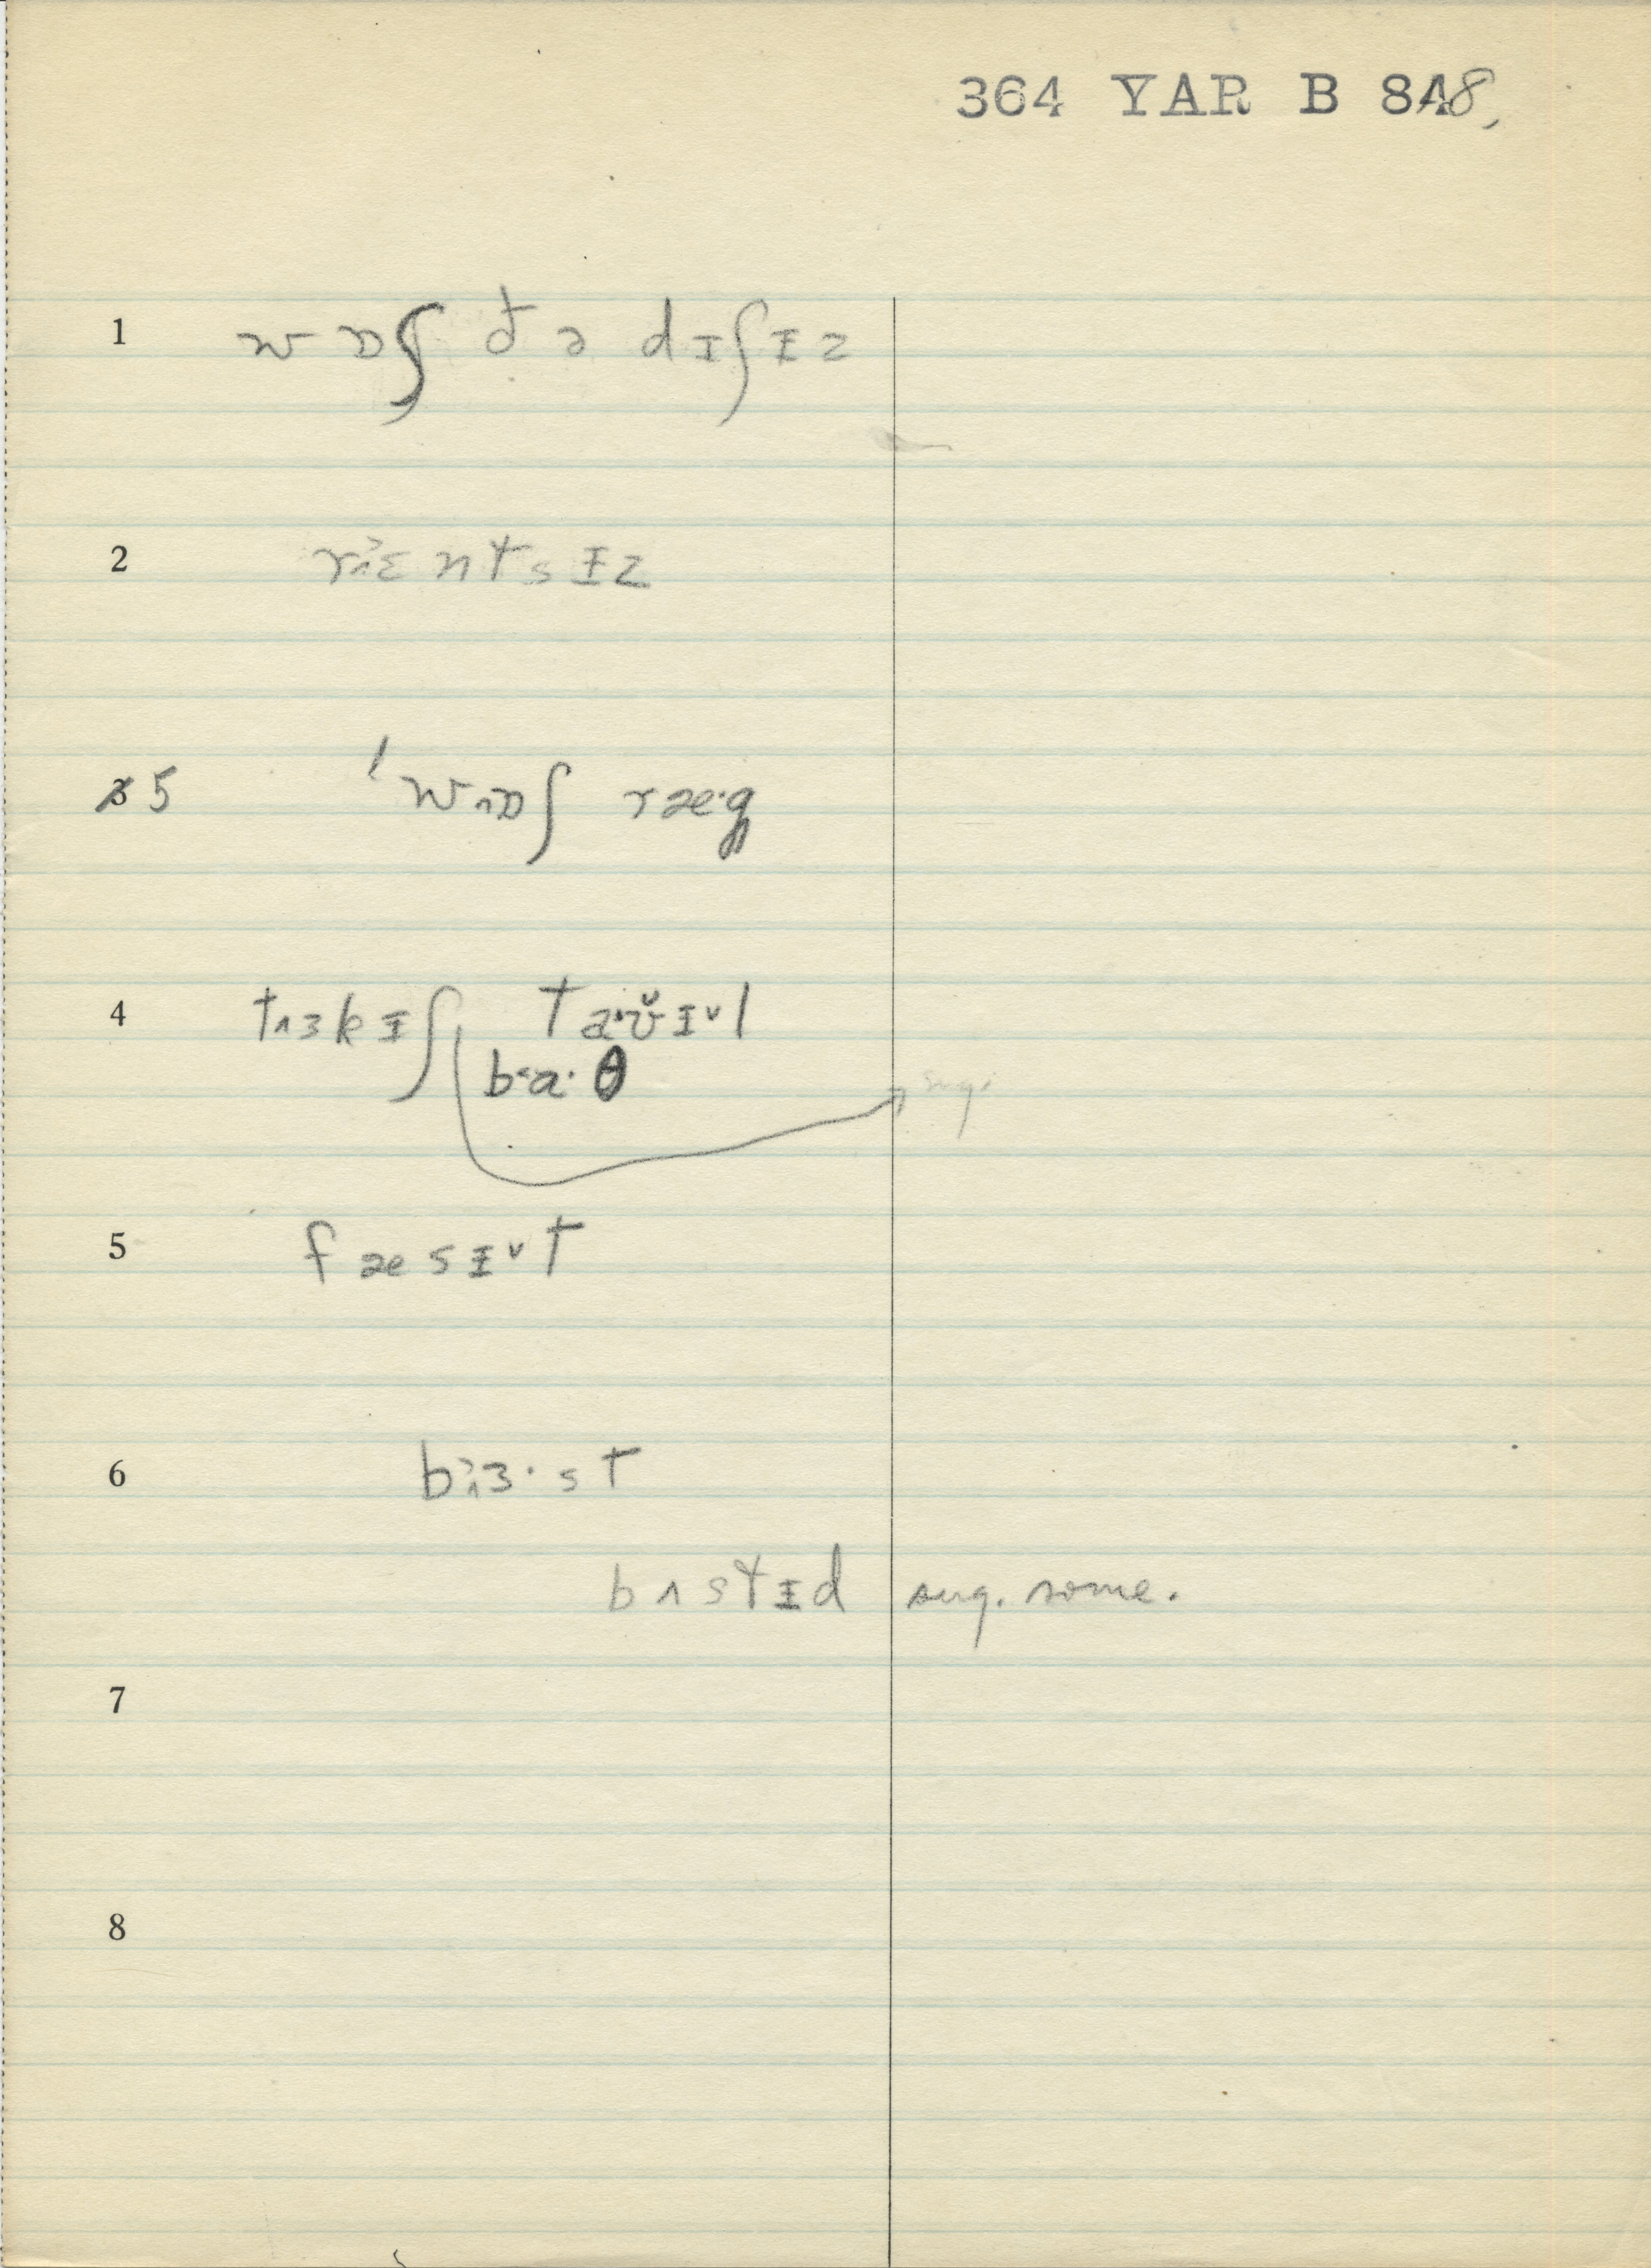 364 YAR B 848
1 wɒʃ ðə dɪʃɪz
2 rɛntsɪz
5 ˈwɒʃ ræ·g
4 tɜkɪʃ ta·ʊ̌ɪ˅l
ba·θ sug.
5 fæsɪ˅t
6 bɜ·st
bʌstɪd sug. some.
7
8